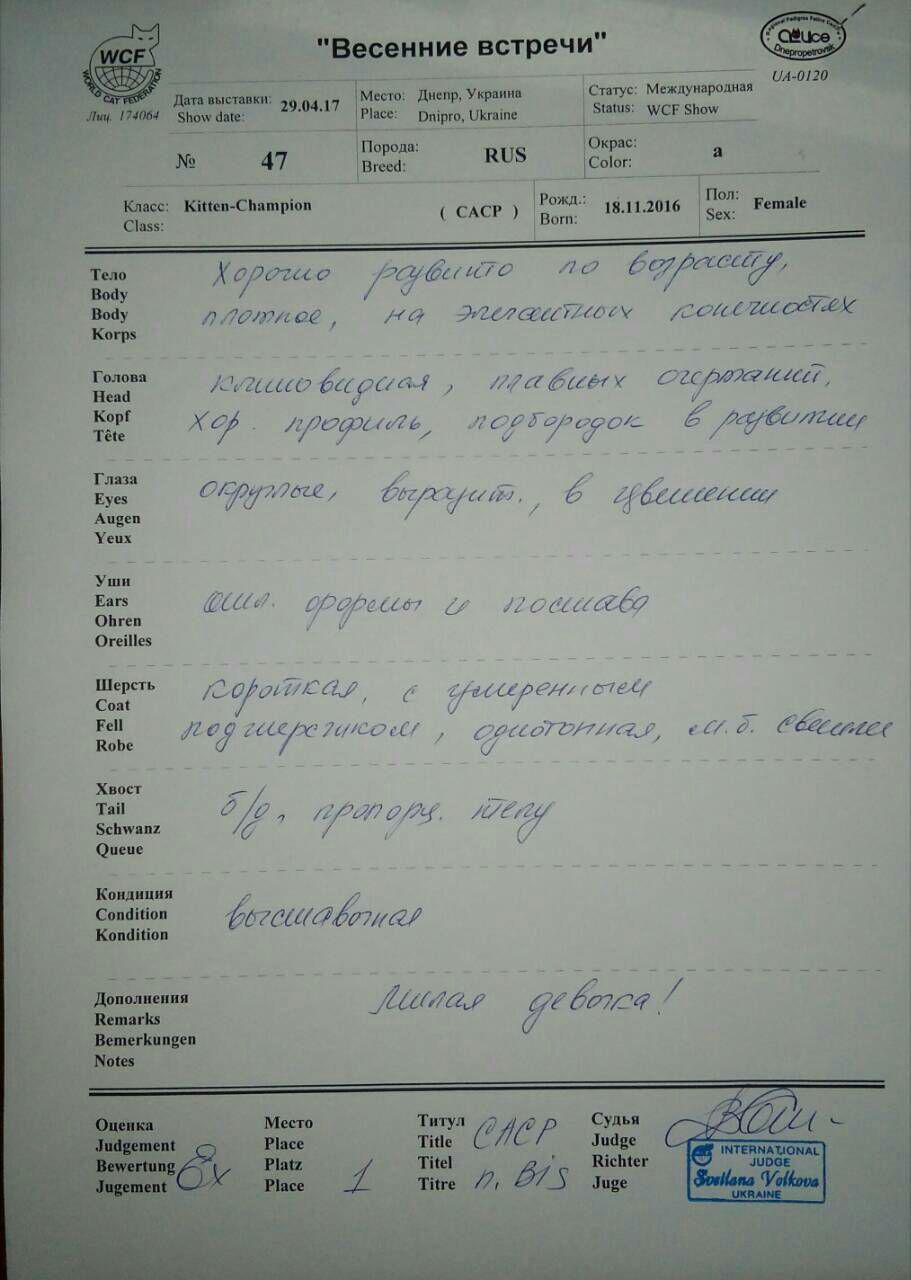 "Весенние встречи"
WCF
WORLD CAT FEDERATION
Лиц. 174064
Regional Pedigree Feline Centre
Alice
Dnepropetrovsk
UA-0120
Дата выставки: 29.04.17
Show date:
Место: Днепр, Украина
Place: Dnipro, Ukraine
Статус: Международная
Status: WCF Show
№ 47
Порода: RUS
Breed:
Окрас: a
Color:
Класс: Kitten-Champion ( CACP )
Class:
Рожд.: 18.11.2016
Born:
Пол: Female
Sex:
Тело
Body
Body
Korps
Хорошо развито по возрасту,
плотное, на элегантных конечностях
Голова
Head
Kopf
Tête
клиновидная, плавных очертаний,
хор. профиль, подбородок в развитии
Глаза
Eyes
Augen
Yeux
округлые, выразит., в цветении
Уши
Ears
Ohren
Oreilles
отл. формы и постава
Шерсть
Coat
Fell
Robe
короткая, с умеренным
подшерстком, однотонная, м.б. светлее
Хвост
Tail
Schwanz
Queue
б/д, пропорц. телу
Кондиция
Condition
Kondition
выставочная
Дополнения
Remarks
Bemerkungen
Notes
Милая девочка!
Оценка
Judgement
Bewertung
Jugement
Ex
Место
Place
Platz
Place
1
Титул
Title
Titel
Titre
CACP
n. Bis
Судья
Judge
Richter
Juge
INTERNATIONAL
JUDGE
Svetlana Volkova
UKRAINE